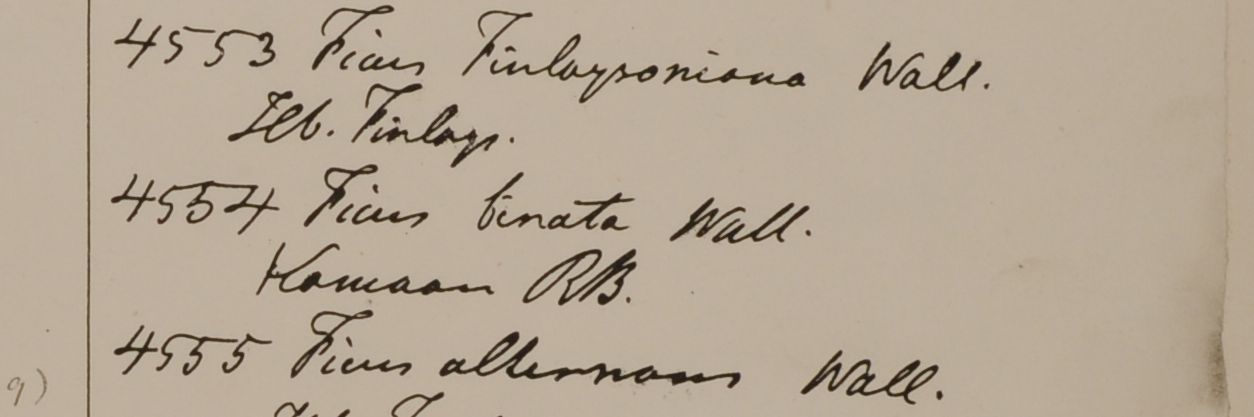 4553 Ficus Finlaysoniana Wall.
Hb. Finlays.
4554 Ficus binata Wall.
Kamaon RB.
4555 Ficus alternans Wall.
9)